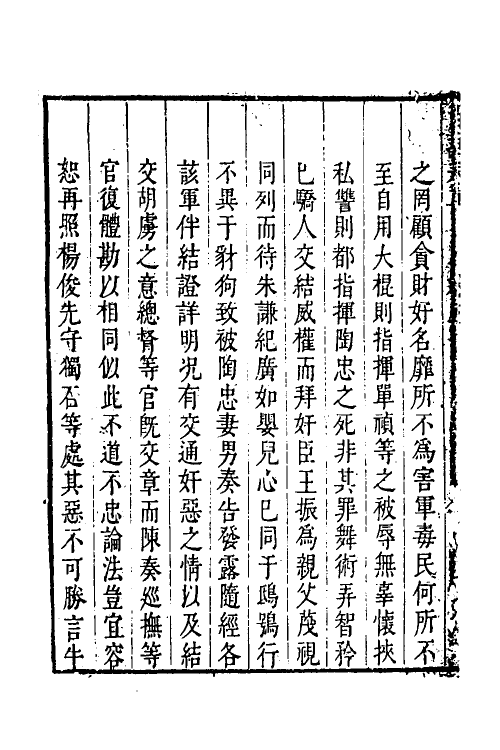 之罔顧貪財好名靡所不爲害軍毒民何所不
至自用大棍則指揮單禎等之被辱無辜懷挾
私讐則都指揮陶忠之死非其罪舞術弄智矜
己驕人交結威權而拜奸臣王振爲親父茂視
同列而待朱謙紀廣如嬰兒心已同于鴟鴞行
不異于豺狗致被陶忠妻男奏告發露隨經各
該軍伴結證詳明况有交通奸惡之情以及結
交胡虜之意總督等官旣交章而陳奏巡撫等
官復體勘以相同似此不道不忠論法豈宜容
恕再照楊俊先守獨石等處其惡不可勝言牛